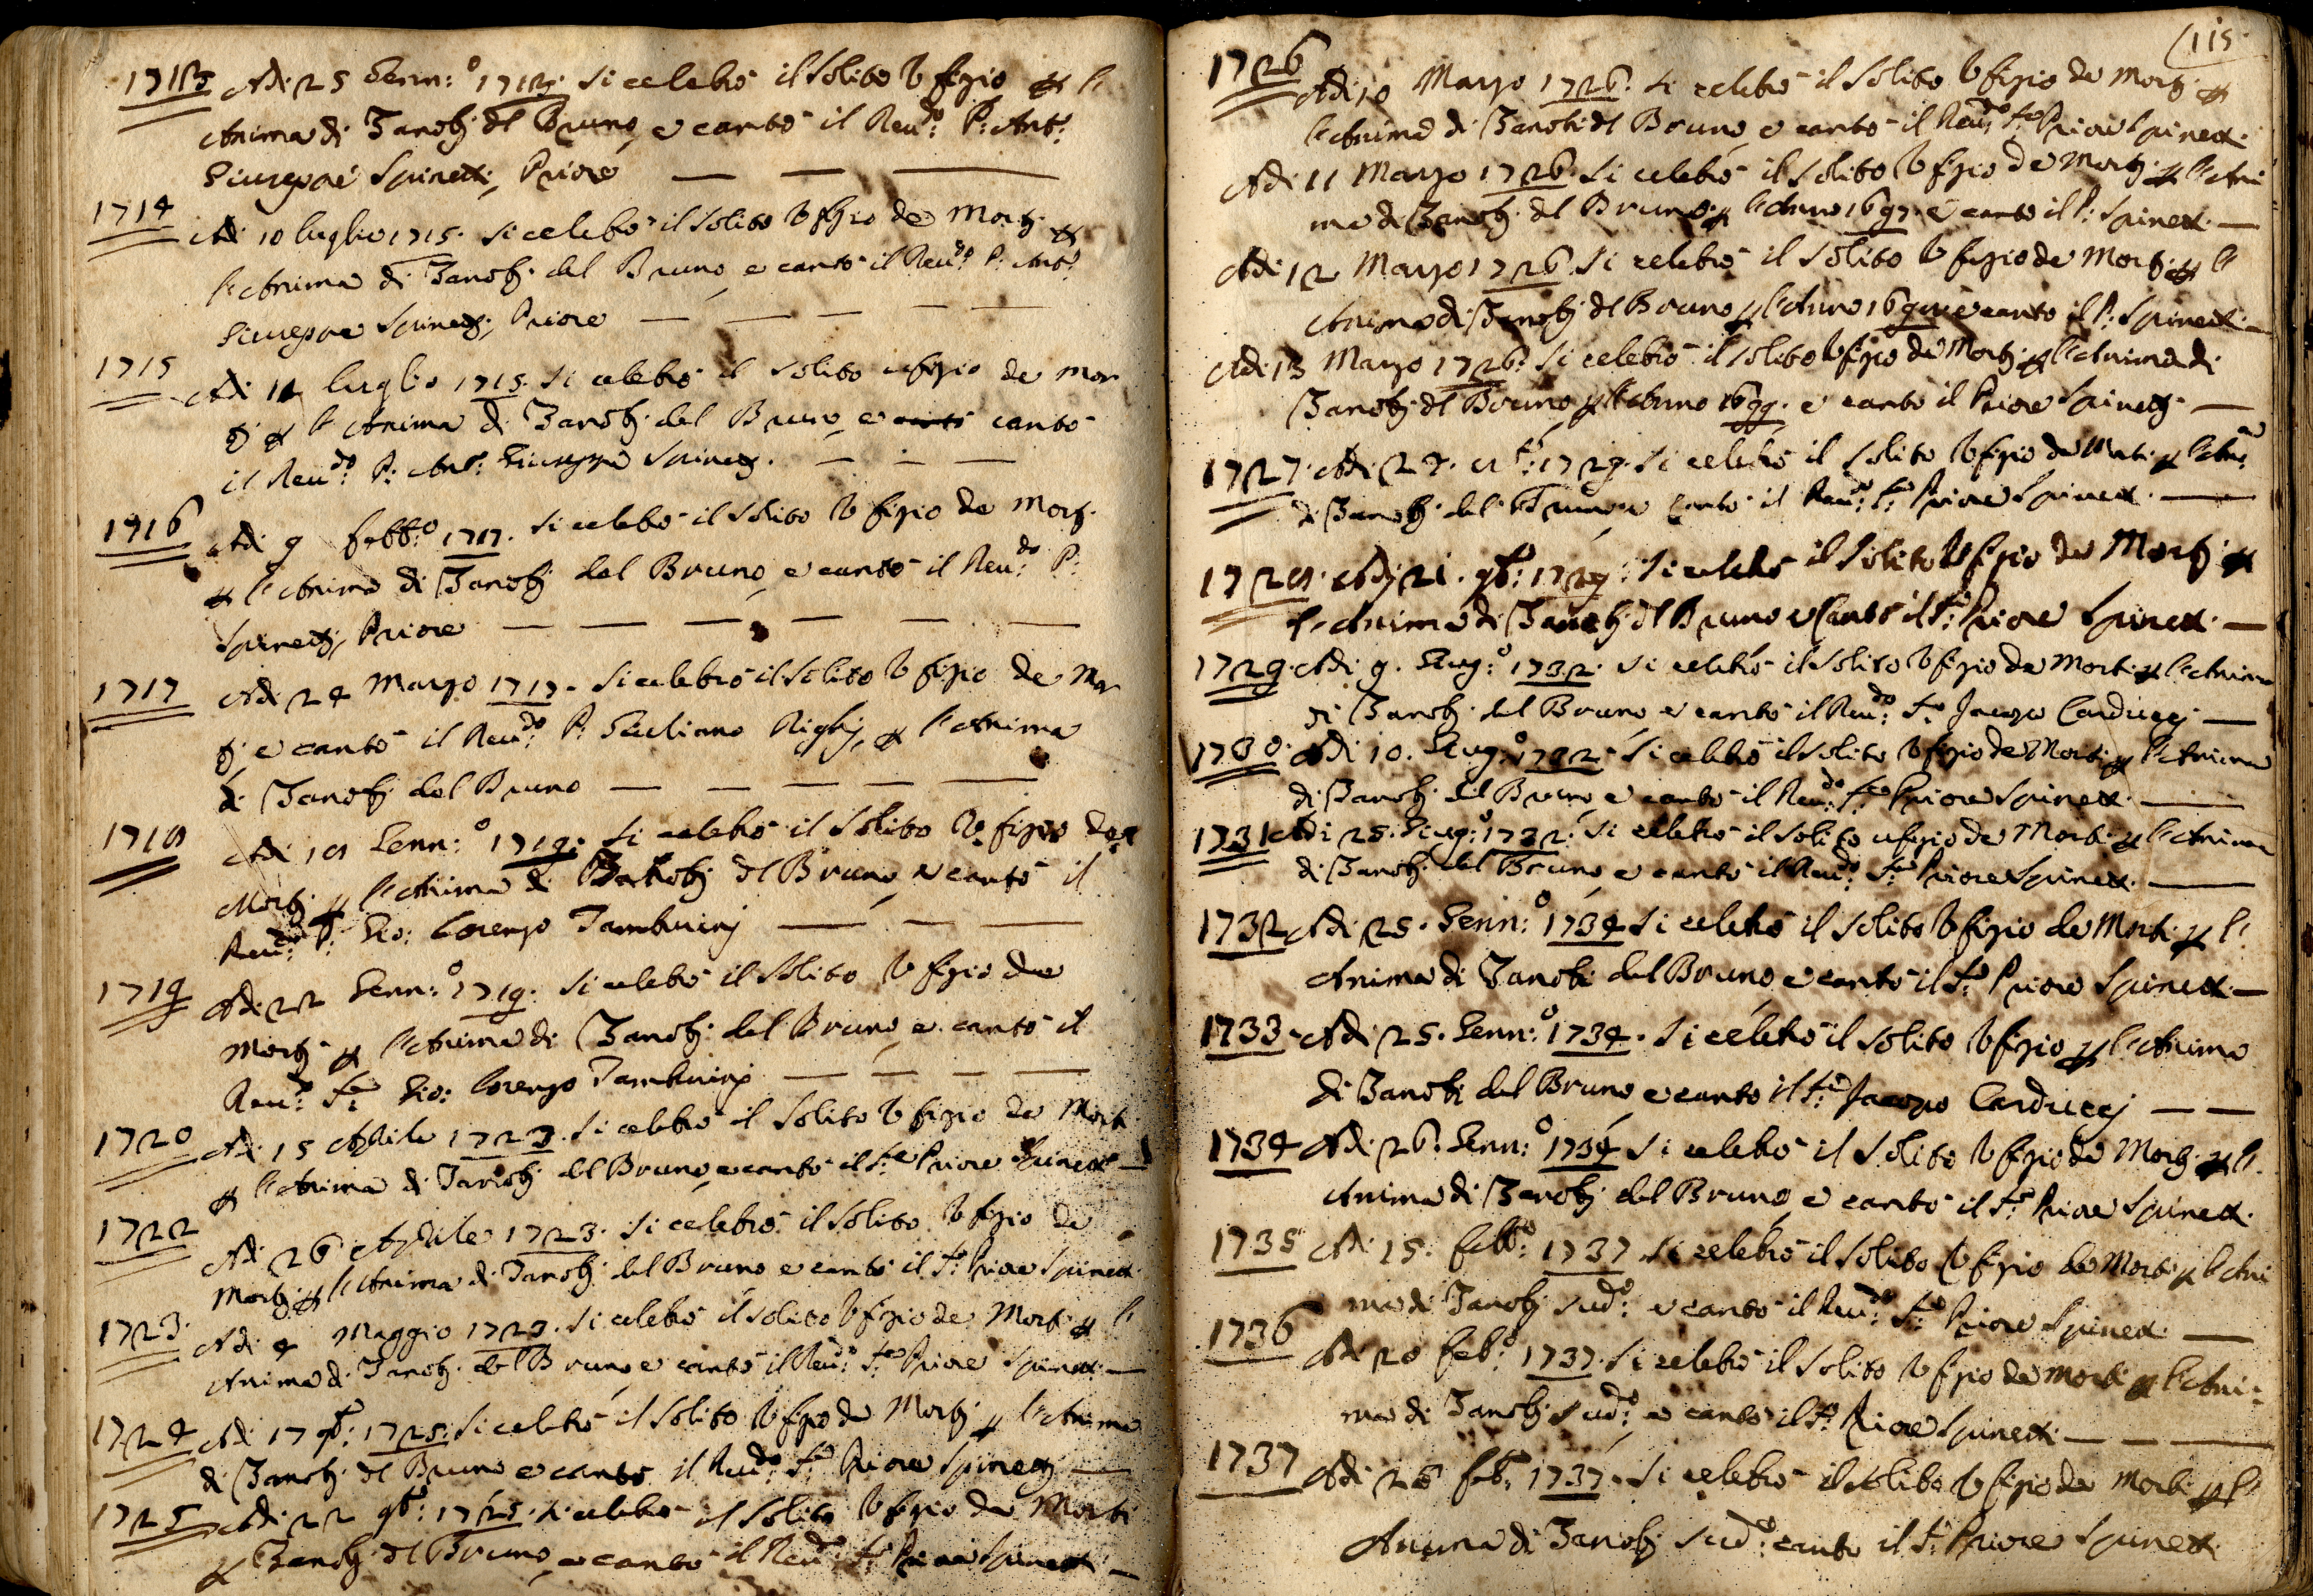 1713 Adi 25 Genn:o 1713. Si celebrò il solito Ufizio p l'
Anima di Zanobj del Bruno, e cantò il Reu:do P: Ant:o
Giuseppe Spinetti, Priore
1714 Adi 10 luglio 1715. Si celebrò il solito Ufizio de Mortj p
l'Anima di Zanobj del Bruno, e cantò il Reu:do P: Ant:o
Giuseppe Spinettj, Priore
1715 Adi 11 luglio 1715. Si celebrò il solito ufizio de Mor
tj p l'Anima di Zanobj del Bruno, e cantò
il Reu:do P: Ant:o Giuseppe Spinettj.
1716 Adi 9 Febb:o 1717. Si celebrò il solito Ufizio de Mortj
p l'Anima di Zanobj del Bruno, e cantò il Reu:do P:
Spinettj, Priore
1717 Adi 24 Marzo 1717. Si celebrò il solito Ufizio de Mor
tj, e cantò il Reu:do P: Giuliano Righj, p l'Anima
di Zanobj del Bruno
1718 Adi 18 Genn:o 1719. Si celebrò il solito Ufizio de
Mortj p l'Anima di Zanobj del Bruno, e cantò il
Reu:do P: Gio: Lorenzo Tamburinj
1719 Adi 22 Genn:o 1719. Si celebrò il solito Ufizio de
Mortj p l'Anima di Zanobj del Bruno, e cantò il
Reu:do Gio: Lorenzo Tamburinj
1720 Adi 15 Aprile 1723. Si celebrò il solito Ufizio de Morti
p l'Anima di Zanobj del Bruno, e cantò il Priore Spinetti
1722 Adi 26 Aprile 1723. Si celebrò il solito Ufizio de
Mortj p l'Anima di Zanobj del Bruno e cantò il Priore Spinetti
1723. Adi 4 Maggio 1723. Si celebrò il solito Ufizio de Mortj p l'
Anima di Zanobj del Bruno e cantò il Reu:do Priore Spinetti
1724 Adi 17 9b:e 1725. Si celebrò il solito Ufizio de Mortj p l'Anima
di Zanobj del Bruno e cantò il Reu:do Priore Spinettj
1725 Adi 22 9b:e 1725. Si celebrò il solito Ufizio de Morti
p Zanobj del Bruno, e cantò il Reu:do Priore Spinetti
115
1726 Adi 10 Marzo 1726. Si celebrò il solito Ufizio de Mortj p
l'Anima di Zanobi del Bruno e cantò il Reu:do Priore Spinetti.
Adi 11 Marzo 1726. Si celebrò il solito Ufizio de Mortj p l'Ani
ma di Zanobj del Bruno p l'Anno 1697. e cantò il P: Spinetti
Adi 12 Marzo 1726. Si celebrò il solito Ufizio de Mortj p l'
Anima di Zanobj del Bruno p l'Anno 1698 e cantò il P: Spinetti
Adi 13 Marzo 1726. Si celebrò il solito Ufizio de Mortj p l'Anima di
Zanobj del Bruno p l'Anno 1699. e cantò il Priore Spinettj
1727. Adi 27. 1729. Si celebrò il solito Ufizio de Morti p
di Zanobj del Bruno e cantò il Reu:do Priore Spinetti.
1728. Adj 21. 9b:e 1729. Si celebrò il Solito Ufizio de Mortj p
l'Anima di Zanobj del Bruno e cantò il Priore Spinetti.
1729. Adi 9. Giug:o 1732. Si celebrò il solito Ufizio de Morti p l'Anima
di Zanobj del Bruno, e cantò il Reu:do Jacopo Carduccj
1730. Adi 10. Giug:o 1732. Si celebrò il solito Ufizio de Morti p l'Anima
di Zanobj del Bruno, e cantò il Reu:do Priore Spinetti.
1731 Adi 25. Giug:o 1732. Si celebrò il solito ufizio de Morti p l'Anima
di Zanobj del Bruno, e cantò il Reu:do Priore Spinetti.
1732 Adi 25. Genn:o 1734 Si celebrò il solito Ufizio de Morti p l'
Anima di Zanobi del Bruno e cantò il Priore Spinetti
1733. Adi 25. Genn:o 1734. Si celebrò il solito Ufizio p l'Anima
di Zanobi del Bruno e cantò il Jacopo Carduccj
1734 Adi 26. Genn:o 1734 Si celebrò il solito Ufizio de Mortj p l'
Anima di Zanobj del Bruno, e cantò il Priore Spinetti.
1735 Adi 15. Febb:o 1737 Si celebrò il solito Ufizio de Morti p l'Ani
ma di Zanobj sud:o e cantò il Reu:do Priore Spinetti
1736 Adi 20 Feb:o 1737. Si celebrò il solito Ufizio de Morti p l'Ani:
ma di Zanobj sud:o e cantò il Priore Spinetti
1737 Adi 26 Feb:o 1737. Si celebrò il solito Ufizio de Morti p l'
Anima di Zanobj sud:o cantò il Priore Spinetti